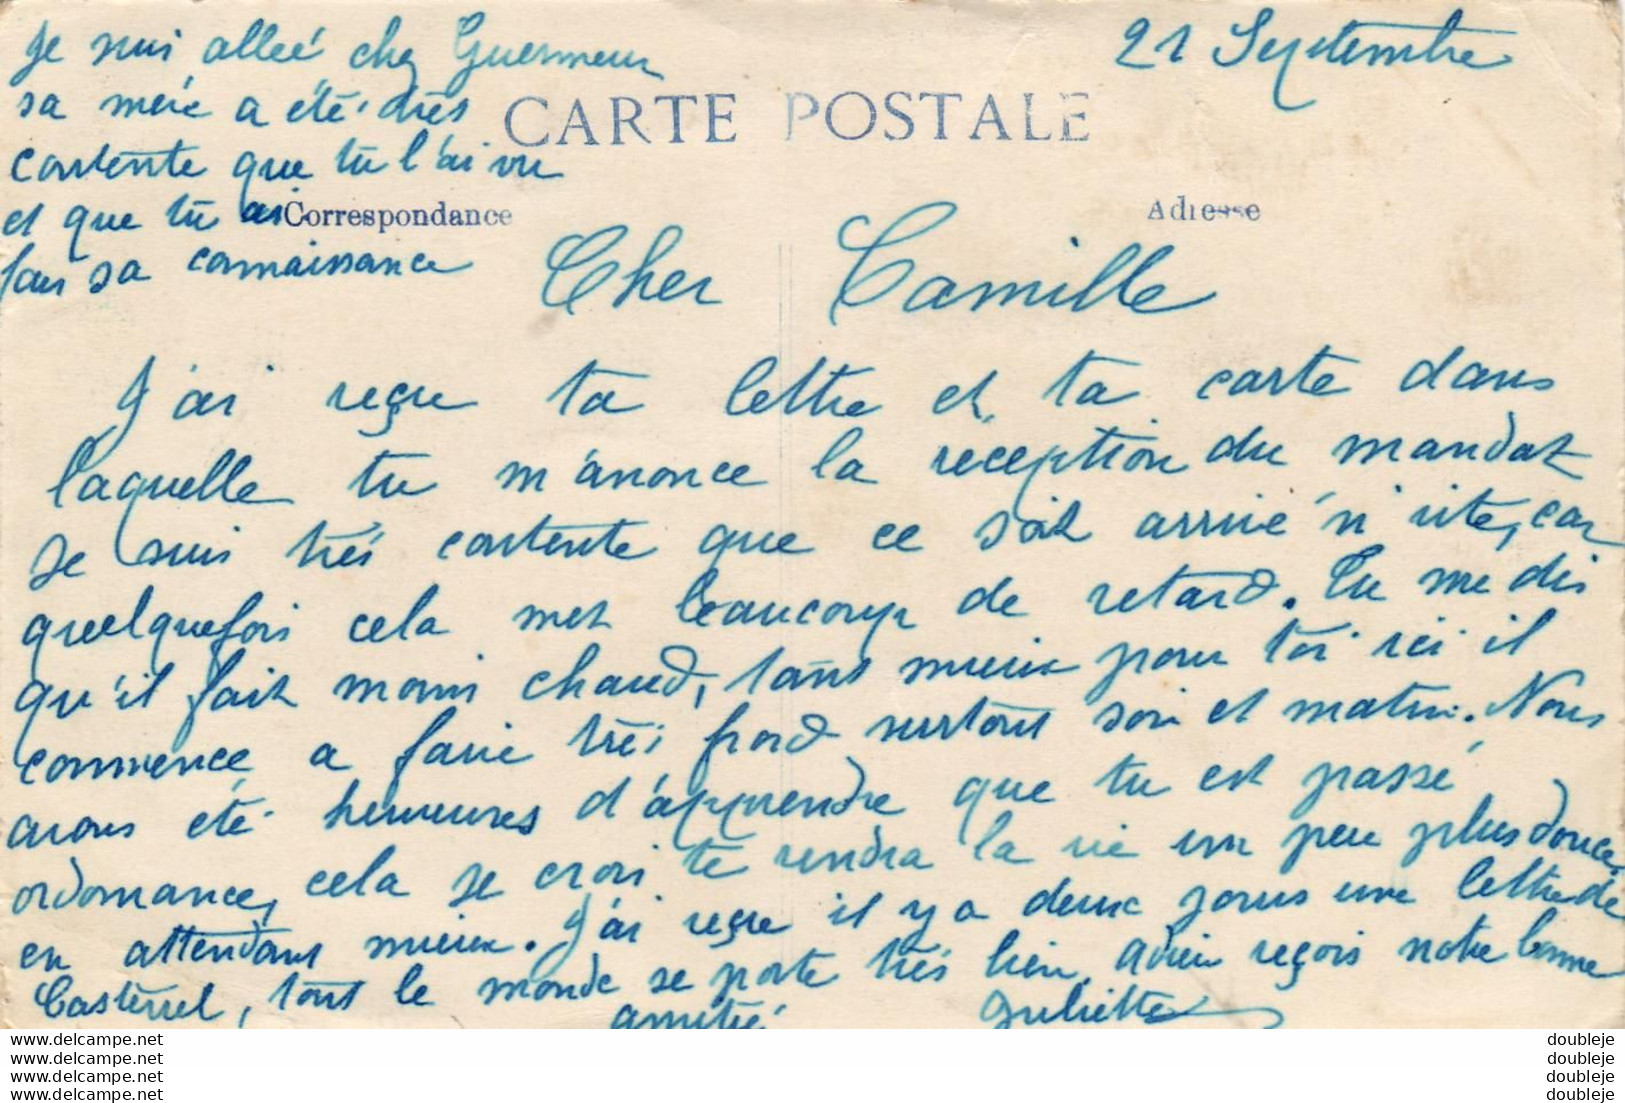 21 Septembre
Je suis alleé chez Guermeur
sa mère a été très
contente que tu l'ai vu
et que tu ai
fais sa connaissance
CARTE POSTALE
Correspondance
Adresse
Cher Camille
J'ai reçue ta lettre et ta carte dans
laquelle tu m'anonce la réception du mandat
je suis très contente que ce soit arrivé si vite, car
quelquefois cela met beaucoup de retard. Tu me dis
qu'il fait moins chaud, tant mieux pour toi ici il
commence a faire très froid surtout soir et matin. Nous
avons été heureuses d'apprendre que tu est passé
ordonnance, cela je crois te rendra la vie un peu plus douce,
en attendant mieux. J'ai reçue il y a deux jours une lettre de
Casterel, tout le monde se porte très bien, adieu reçois notre bonne
amitié Juliette
www.delcampe.net doubleje
www.delcampe.net doubleje
www.delcampe.net doubleje
www.delcampe.net doubleje